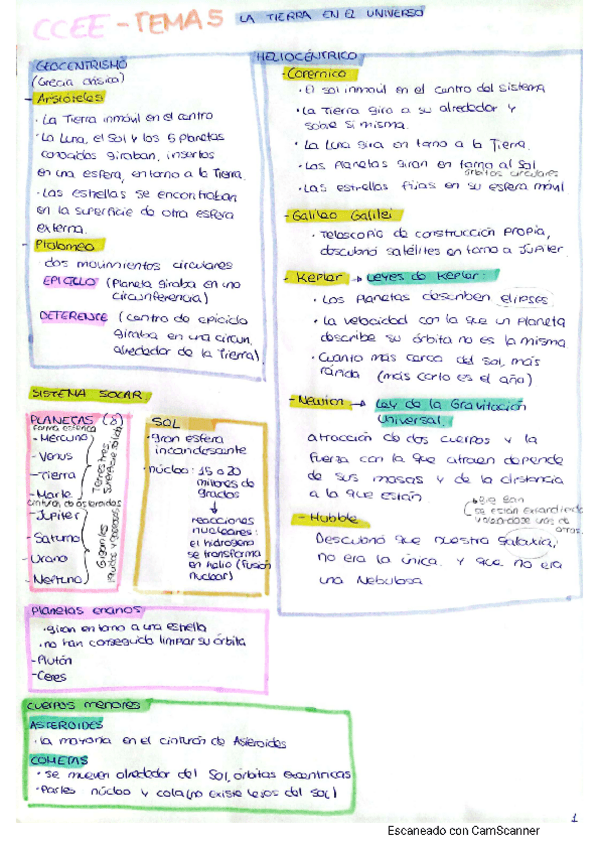 CCEE - TEMA 5 LA TIERRA EN EL UNIVERSO
GEOCENTRISMO
(Grecia clásica)
- Aristóteles
· La Tierra inmóvil en el centro
· La Luna, el Sol y los 5 planetas
conocidos giraban, insertos
en una esfera, en torno a la Tierra.
· Las estrellas se encontraban
en la superficie de otra esfera
externa.
- Ptolomeo
dos movimientos circulares
EPICICLO (Planeta giraba en una
circunferencia)
DEFERENCE (centro de epiciclo
giraba en una circun.
alrededor de la Tierra).
HELIOCÉNTRICO
- Copérnico
· El sol inmóvil en el centro del sistema
· La Tierra gira a su alrededor y
sobre sí misma.
· La Luna gira en torno a la Tierra.
· Los planetas giran en torno al Sol
órbitas circulares
· Las estrellas fijas en su esfera móvil
- Galileo Galilei
· Telescopio de construcción propia,
descubrió satélites en torno a Júpiter.
- Kepler → Leyes de Kepler:
· Los Planetas describen elipses.
· La velocidad con la que un planeta
describe su órbita no es la misma
· Cuanto más cerca del Sol, más
rápida (más corto es el año)
- Newton → Ley de la Gravitación
Universal.
atracción de dos cuerpos y la
fuerza con la que atraen depende
de sus masas y de la distancia
a la que están.
Big Ban
se están expandiendo
unos de
otros.
- Hubble
Descubrió que nuestra Galaxia,
no era la única. y que no era
una Nebulosa
SISTEMA SOLAR
PLANETAS (8)
forma esférica
- Mercurio
- Venus
- Tierra
- Marte
Terrestres
superficie sólida
cinturón de asteroides
- Júpiter
- Saturno
- Urano
- Neptuno
Gigantes
líquidos y gaseosos
SOL
· gran esfera
incandesante
· núcleo: 15 a 20
millones de
grados
↓
reacciones
nucleares:
el hidrógeno
se transforma
en helio (fusión
nuclear)
Planetas enanos
· giran en torno a una estrella
· no han conseguido limpiar su órbita
- Plutón
- Ceres
cuerpos menores
ASTEROIDES
· la mayoría en el cinturón de Asteroides
COMETAS
· se mueven alrededor del Sol, órbitas excéntricas
· Partes núcleo y cola (no existe lejos del sol)
1
Escaneado con CamScanner